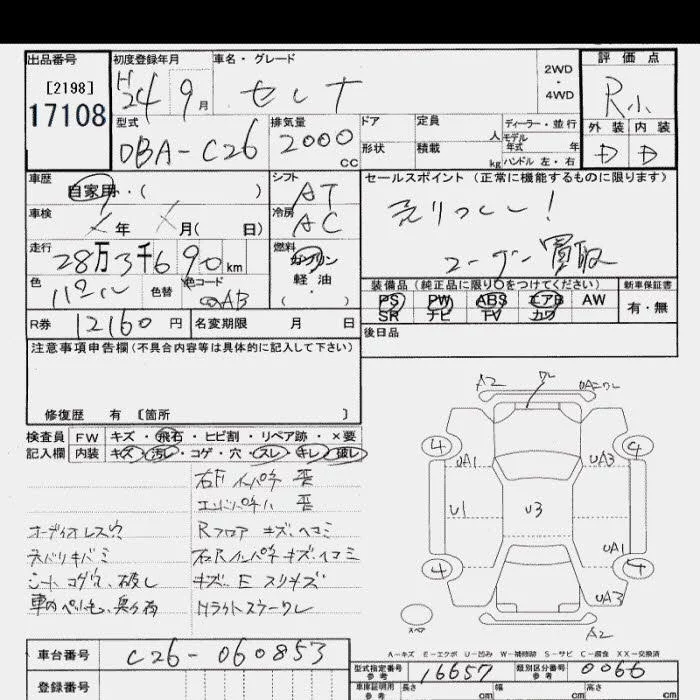 出品番号
[2198]
17108
初度登録年月
H24 9 月
車名・グレード
セレナ
2WD
・
4WD
評価点
R小
外装 内装
D D
型式
DBA-C26
排気量
2000
cc
ドア
形状
定員
人
積載
kg
ディーラー・並行
モデル
年式 年
ハンドル 左・右
車歴
自家用・( )
車検
年 月( 日)
シフト
AT
冷房
AC
セールスポイント (正常に機能するものに限ります)
売りつくし!
ユーザー買取
走行
28万3千690 km
燃料
ガソリン
軽油
( ・ )
色
色替
色コード
装備品(純正品に限り○をつけてください)
新車保証書
PS PW ABS エアB AW
SR ナビ TV カワ
有・無
R券
12160 円
名変期限 月 日
後日品
注意事項申告欄(不具合内容等は具体的に記入して下さい)
修復歴 有 〔箇所 〕
検査員
記入欄
FW キズ・飛石・ヒビ割・リペア跡・×要
内装 キズ・汚レ・コゲ・穴・スレ・キレ・破レ
オーディオレス穴
Rフロア キズ、ヘコミ
シートコゲ穴、破レ
キズ、E スリキズ
A2
A2
4 4
UA1
UA3
U1
U3
UA1
4 4
UA3
A2
スペア
A-キズ E-エクボ U-凹み W-補修跡 S-サビ C-腐食 XX-交換済
車台番号
C26-060853
登録番号
型式指定番号
参考
16657
類別区分番号
参考
0066
車庫証明用
参考
長さ cm
幅 cm
高さ cm